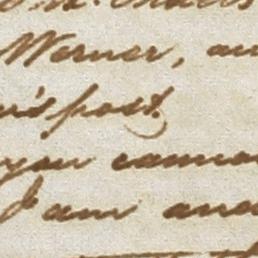 Werner, an
's post
you canno
I am and